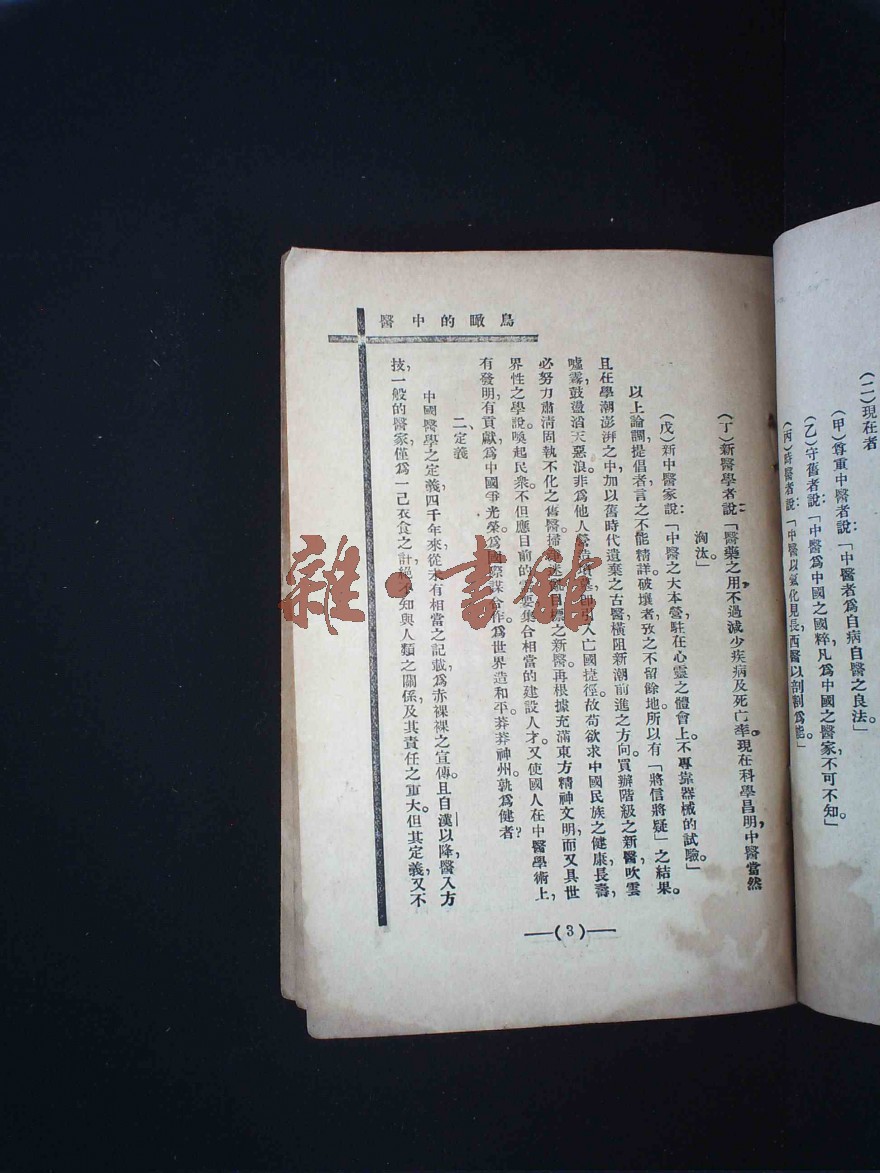 (二)現在者
(甲)尊重中醫者說：「中醫者爲自病自醫之良法」
(乙)守舊者說：「中醫爲中國之國粹，凡爲中國之醫家，不可不知」
(丙)時醫者說：「中醫以氣化見長，西醫以剖割爲能」
鳥瞰的中醫
(丁)新醫學者說：「醫藥之用，不過減少疾病及死亡率。現在科學昌明，中醫當然
淘汰。」
(戊)新中醫家說：「中醫之大本營駐在心靈之體會上，不專靠器械的試驗。
以上論調，提倡者言之不能精詳，破壞者致之不留餘地。所以有「將信將疑」之結果。
且在學潮澎湃之中，加以舊時代遺棄之古醫，橫阻新潮前進之方向。買辦階級之新醫，吹雲
噓霧，鼓盪滔天惡浪。非爲他人營造墳墓，卽引人亡國捷徑。故苟欲求中國民族之健康，長壽，
必努力肅清固執不化之舊醫，掃 目標之新醫。再根據充滿東方精神文明，而又具世
界性之學說。喚起民衆。不但應目前的需要，集合相當的建設人才。又使國人在中醫學術上，
有發明，有貢獻，爲中國爭光榮。爲國際謀合作。爲世界造和平。莽莽神州，孰爲健者？
二、定義
中國醫學之定義，四千年來從未有相當之記載，爲赤裸裸之宣傳。且自漢以降，醫入方
技，一般的醫家，僅爲一己衣食之計，絕不知與人類之關係，及其責任之重大。但其定義，又不
(3)
雜·書館